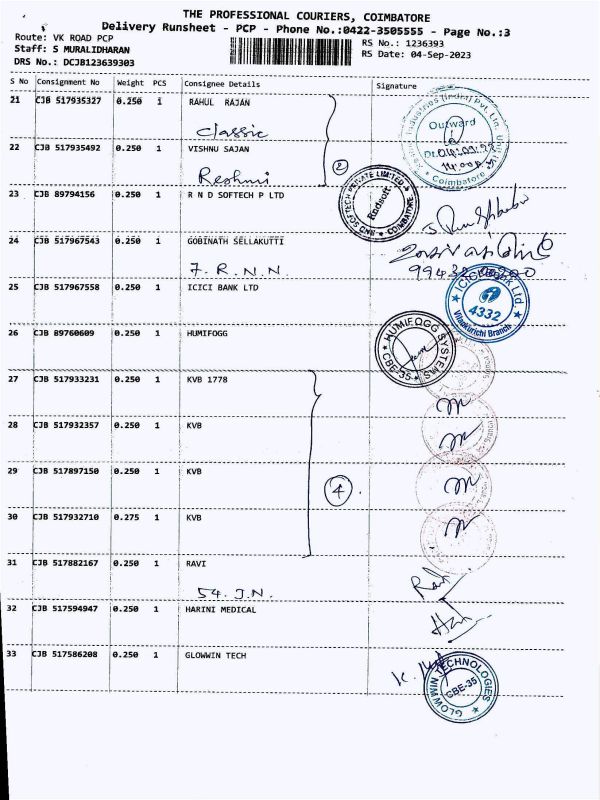 THE PROFESSIONAL COURIERS, COIMBATORE
Delivery Runsheet - PCP - Phone No.:0422-3505555 - Page No.:3
Route: VK ROAD PCP
RS No.: 1236393
Staff: S MURALIDHARAN
RS Date: 04-Sep-2023
DRS No.: DCJB123639303
S No Consignment No Weight PCS Consignee Details Signature
21 CJB 517935327 0.250 1 RAHUL RAJAN
Classic
Outward
22 CJB 517935492 0.250 1 VISHNU SAJAN
Coimbatore
Reshmi
2
23 CJB 89794156 0.250 1 R N D SOFTECH P LTD
Rndsoft
COIMBATORE
24 CJB 517967543 0.250 1 GOBINATH SELLAKUTTI
7. R. N. N.
25 CJB 517967558 0.250 1 ICICI BANK LTD
ICICI Bank Ltd.
4332
Vilankurichi Branch
26 CJB 89760609 0.250 1 HUMIFOGG
HUMIFOGG SYSTEMS
CBE-35
27 CJB 517933231 0.250 1 KVB 1778
28 CJB 517932357 0.250 1 KVB
29 CJB 517897150 0.250 1 KVB
4
30 CJB 517932710 0.275 1 KVB
31 CJB 517882167 0.250 1 RAVI
54. J.N.
32 CJB 517594947 0.250 1 HARINI MEDICAL
33 CJB 517586208 0.250 1 GLOWWIN TECH
GLOWWIN TECHNOLOGIES
CBE-35